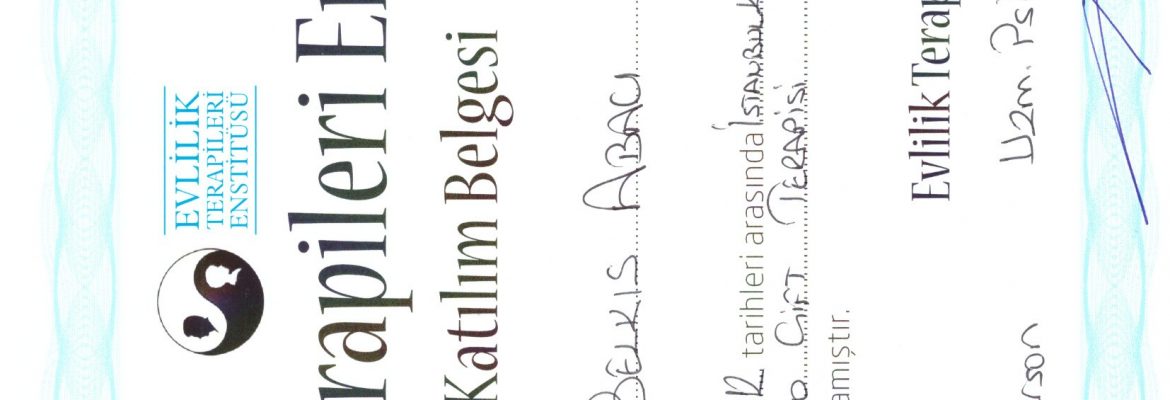 EVLİLİK
TERAPİLERİ
ENSTİTÜSÜ
rapileri E
Katılım Belgesi
BELKIS ABACI
tarihleri arasında İSTANBUL
ÇİFT TERAPİSİ
amıştır.
Evlilik Terap
rson Uzm. Ps